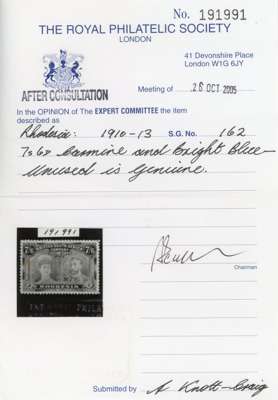 No. 191991
THE ROYAL PHILATELIC SOCIETY
LONDON
41 Devonshire Place
London W1G 6JY
AFTER CONSULTATION
Meeting of 26 OCT 2005
In the OPINION OF The EXPERT COMMITTEE the item
described as
Rhodesia: 1910-13 S.G. No. 162
7s6d Carmine and bright Blue -
Unused is genuine.
191991
RHODESIA
Chairman
Submitted by A Knott-Craig